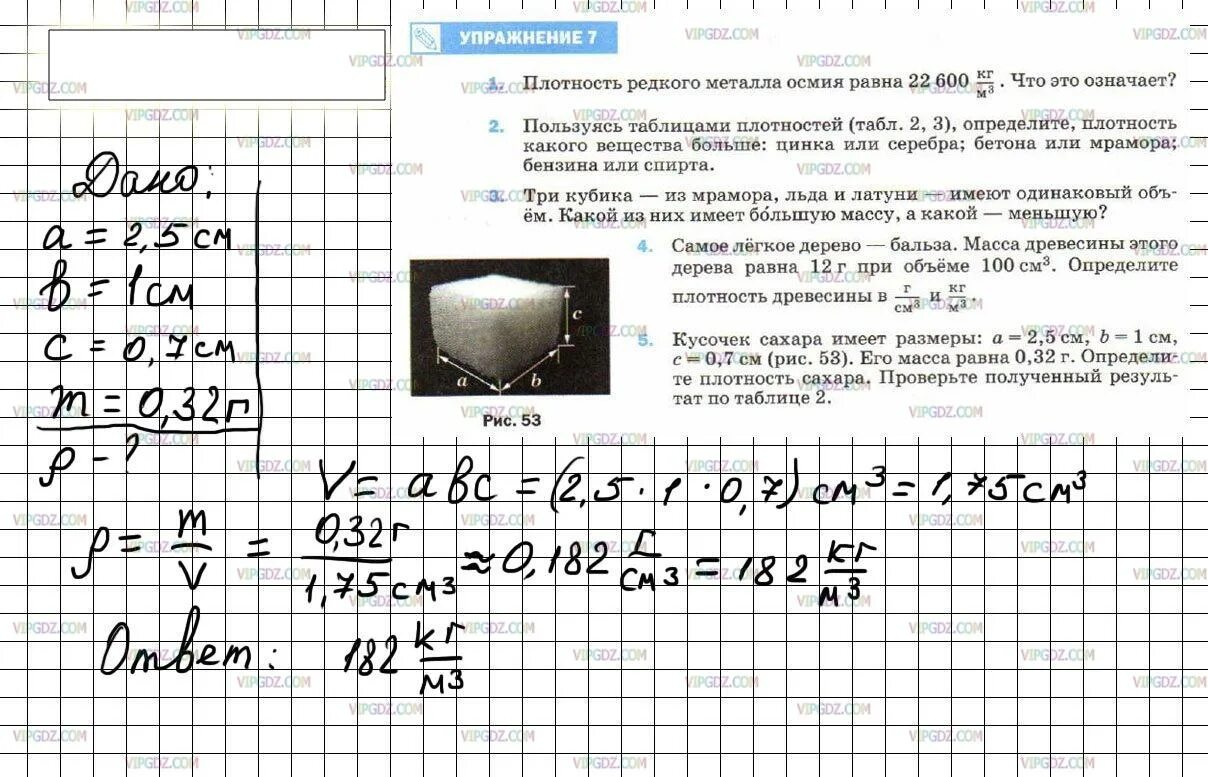 УПРАЖНЕНИЕ 7
1. Плотность редкого металла осмия равна 22 600 кг/м³. Что это означает?
2. Пользуясь таблицами плотностей (табл. 2, 3), определите, плотность
какого вещества больше: цинка или серебра; бетона или мрамора;
бензина или спирта.
3. Три кубика — из мрамора, льда и латуни — имеют одинаковый объ-
ём. Какой из них имеет бо́льшую массу, а какой — меньшую?
4. Самое лёгкое дерево — бальза. Масса древесины этого
дерева равна 12 г при объёме 100 см³. Определите
плотность древесины в г/см³ и кг/м³.
5. Кусочек сахара имеет размеры: a = 2,5 см, b = 1 см,
c = 0,7 см (рис. 53). Его масса равна 0,32 г. Определи-
те плотность сахара. Проверьте полученный резуль-
тат по таблице 2.
c
a b
Рис. 53
Дано:
a = 2,5 см
b = 1 см
c = 0,7 см
m = 0,32 г
ρ - ?
V = abc = (2,5 · 1 · 0,7) см³ = 1,75 см³
ρ = m/V = 0,32 г/1,75 см³ ≈ 0,182 г/см³ = 182 кг/м³
Ответ: 182 кг/м³
VIPGDZ.COM